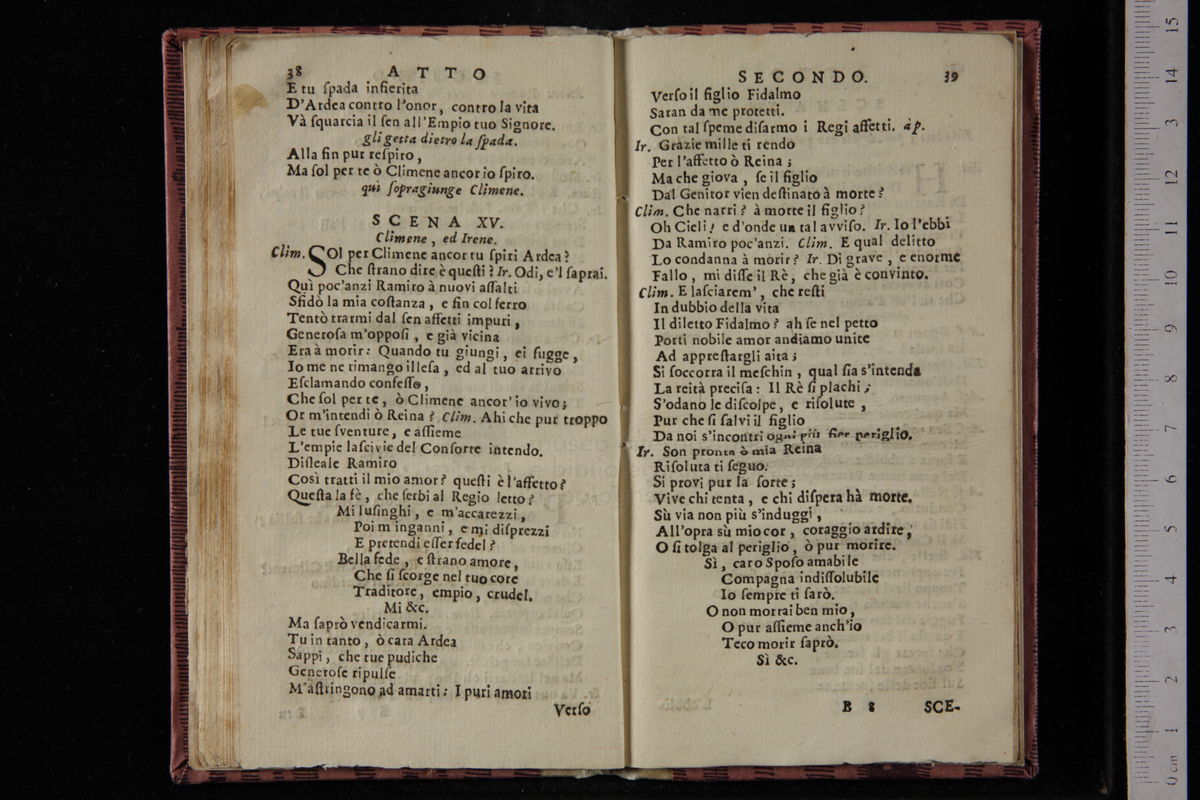 38 ATTO
E tu ſpada infierita
D'Ardea contro l'onor, contro la vita
Và ſquarcia il ſen all'Empio tuo Signore.
gli getta dietro la ſpada.
Alla fin pur reſpiro,
Ma ſol per te ò Climene ancor io ſpiro.
quì ſopragiunge Climene.
SCENA XV.
Climene, ed Irene.
Clim. SOl per Climene ancor tu ſpiri Ardea?
Che ſtrano dire è queſti? Ir. Odi, e'l ſaprai.
Quì poc'anzi Ramiro à nuovi aſſalti
Sfidò la mia coſtanza, e fin col ferro
Tentò trarmi dal ſen affetti impuri,
Generoſa m'oppoſi, e già vicina
Era à morir: Quando tu giungi, ei fugge,
Io me ne rimango illeſa, ed al tuo arrivo
Eſclamando confeſſo,
Che ſol per te, ò Climene ancor'io vivo;
Or m'intendi ò Reina? Clim. Ahi che pur troppo
Le tue ſventure, e aſſieme
L'empie laſcivie del Conſorte intendo.
Diſleale Ramiro
Così tratti il mio amor? queſti è l'affetto?
Queſta la fè, che ſerbi al Regio letto?
Mi luſinghi, e m'accarezzi,
Poi m'inganni, e mi diſprezzi
E pretendi eſſer fedel?
Bella fede, e ſtrano amore,
Che ſi ſcorge nel tuo core
Traditore, empio, crudel.
Mi &c.
Ma ſaprò vendicarmi.
Tu in tanto, ò cara Ardea
Sappi, che tue pudiche
Generoſe ripulſe
M'aſtringono ad amarti: I puri amori
Verſo
SECONDO. 39
Verſo il figlio Fidalmo
Saran da me protetti.
Con tal ſpeme diſarmo i Regi affetti. àp.
Ir. Grazie mille ti rendo
Per l'affetto ò Reina;
Ma che giova, ſe il figlio
Dal Genitor vien deſtinato à morte?
Clim. Che narri? à morte il figlio?
Oh Cieli! e d'onde un tal avviſo. Ir. Io l'ebbi
Da Ramiro poc'anzi. Clim. E qual delitto
Lo condanna à morir? Ir. Di grave, e enorme
Fallo, mi diſſe il Rè, che già è convinto.
Clim. E laſciarem', che reſti
In dubbio della vita
Il diletto Fidalmo? ah ſe nel petto
Porti nobile amor andiamo unite
Ad appreſtargli aita;
Si ſoccorra il meſchin, qual ſia s'intenda
La reità preciſa: Il Rè ſi plachi;
S'odano le diſcolpe, e riſolute,
Pur che ſi ſalvi il figlio
Da noi s'incontri ogni più fier periglio.
Ir. Son pronta ò mia Reina
Riſoluta ti ſeguo.
Si provi pur la ſorte;
Vive chi tenta, e chi diſpera hà morte.
Sù via non più s'induggi,
All'opra sù mio cor, coraggio ardire,
O ſi tolga al periglio, ò pur morire.
Sì, caro Spoſo amabile
Compagna indiſſolubile
Io ſempre ti ſarò.
O non morrai ben mio,
O pur aſſieme anch'io
Teco morir ſaprò.
Sì &c.
B 8 SCE-
0 cm 1 2 3 4 5 6 7 8 9 10 11 12 13 14 15